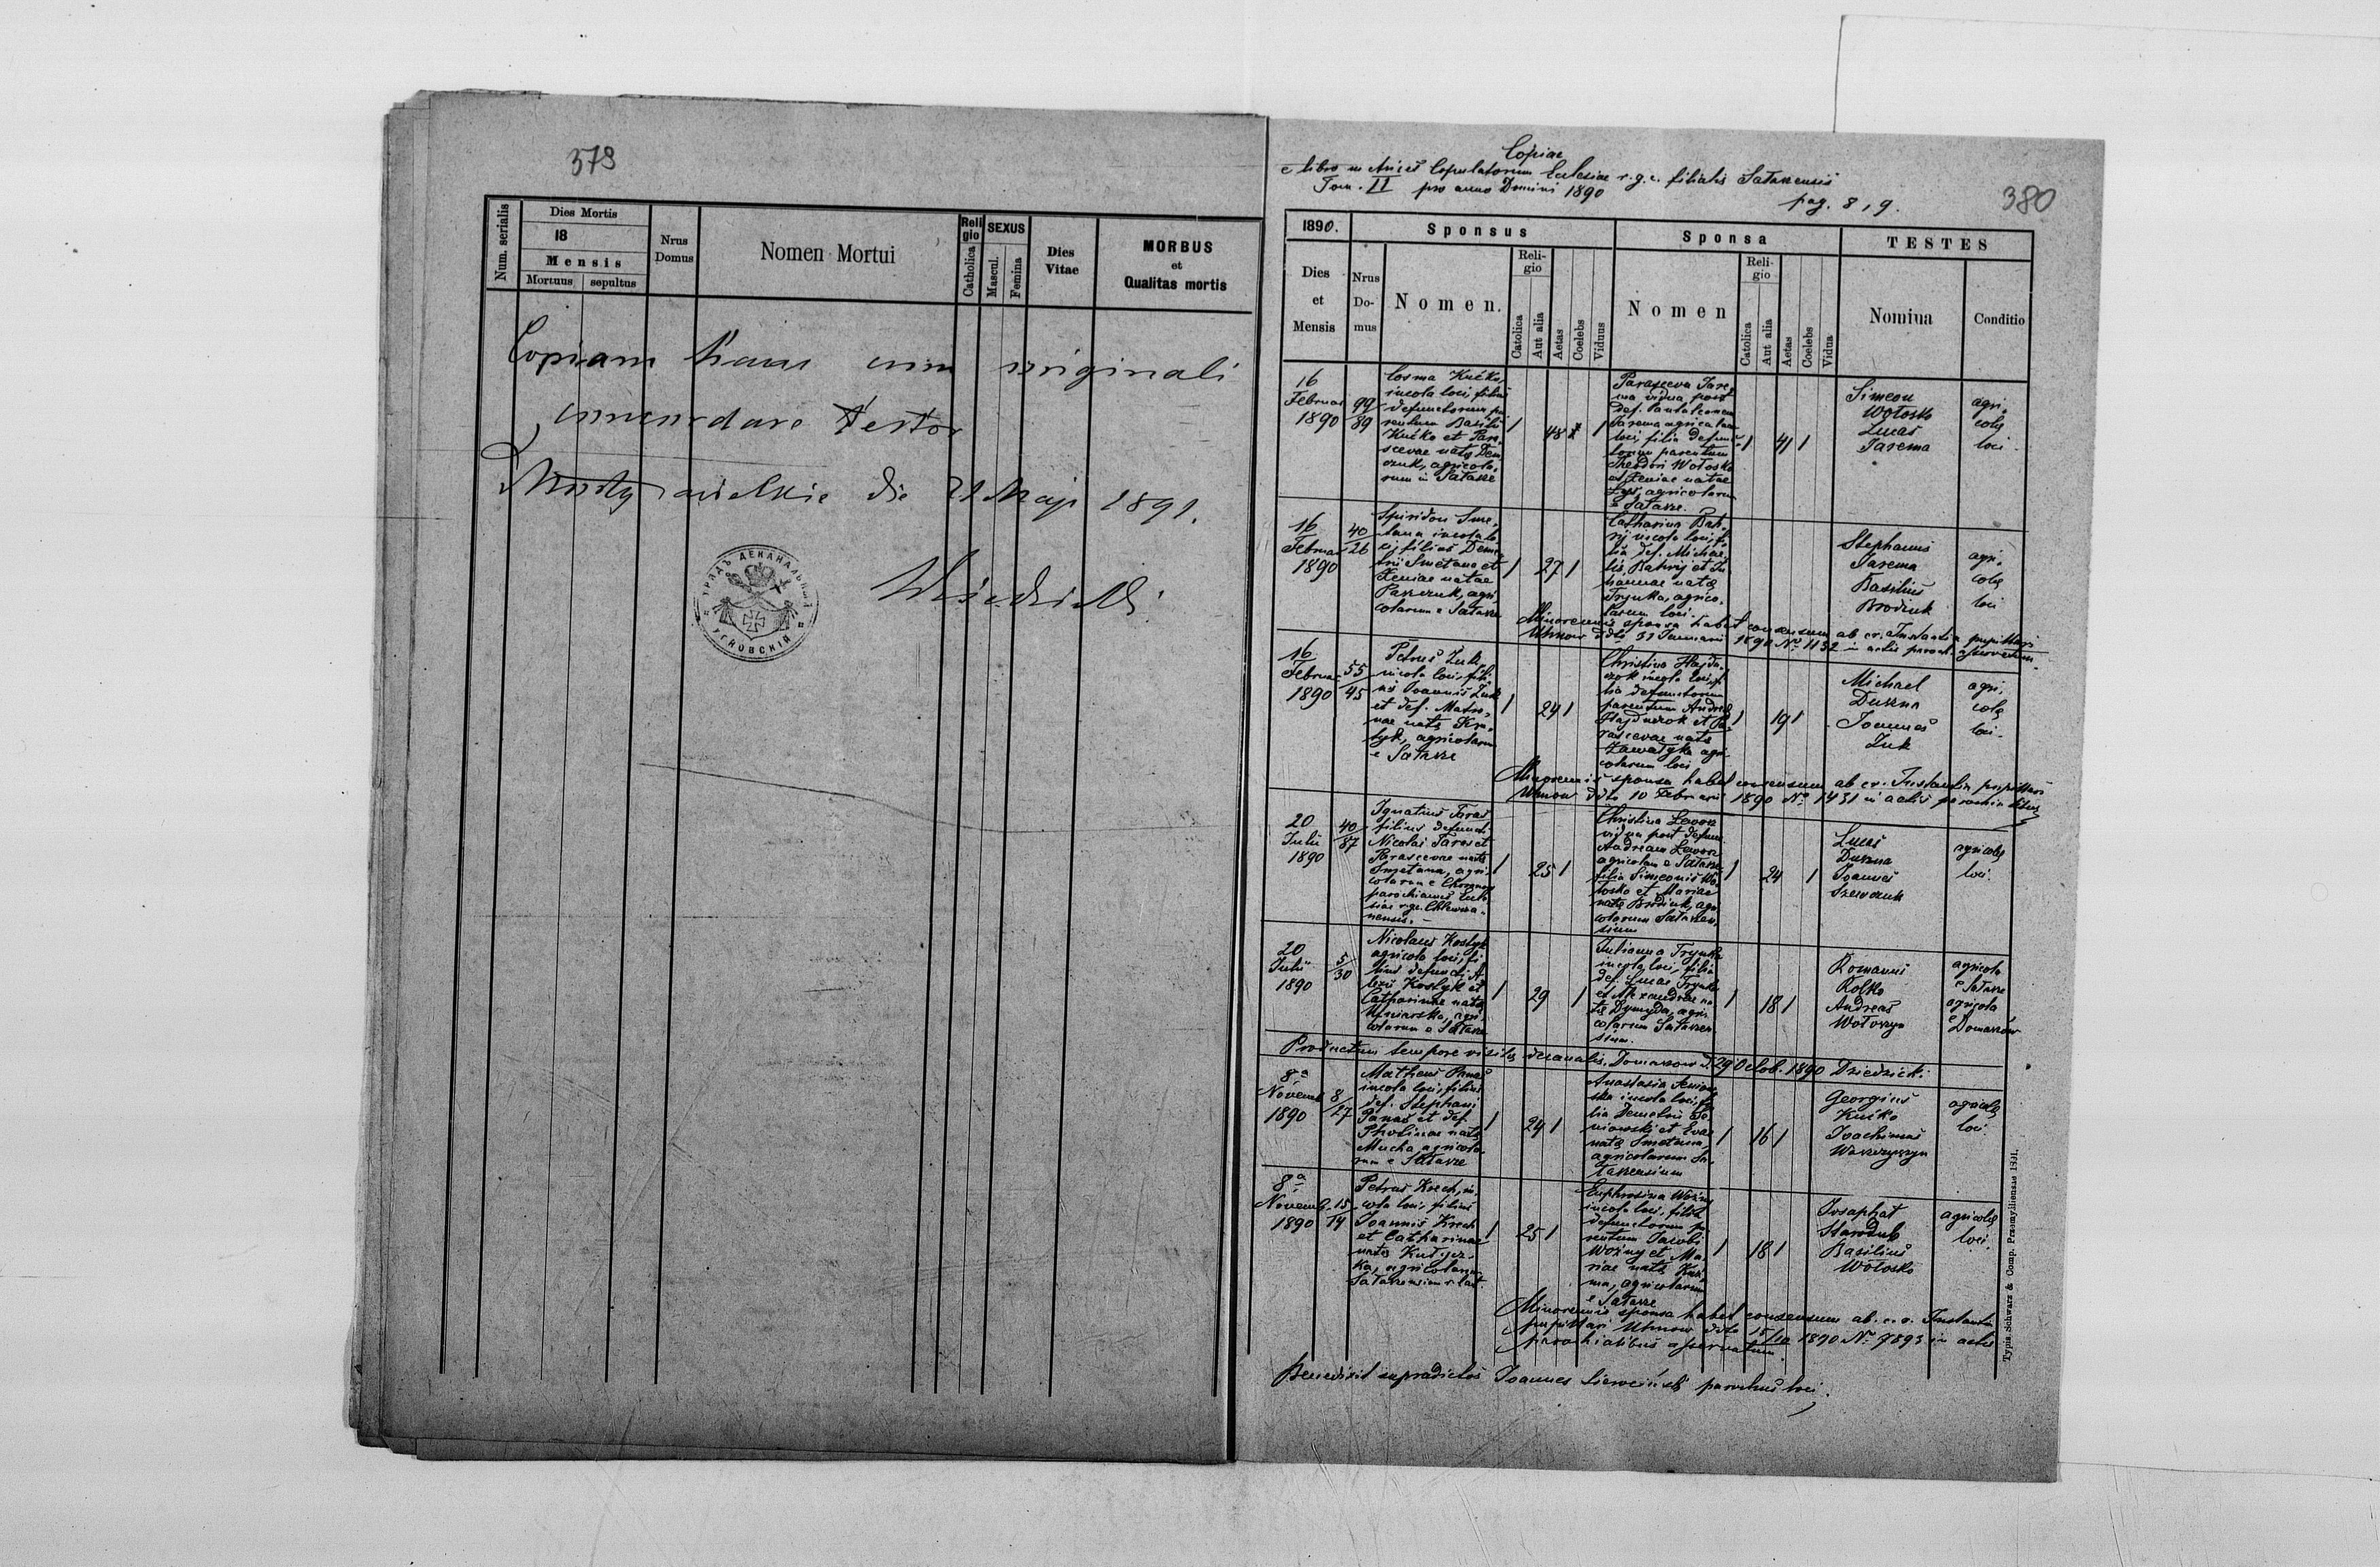 379
Num. serialis
Dies Mortis
18
Mensis
Mortuus
sepultus
Nrus Domus
Nomen Mortui
Religio
Catholica
SEXUS
Mascul.
Femina
Dies Vitae
MORBUS
et
Qualitas mortis
Copiam hanc cum originali
concordare testor
Mosty wielkie die 21 Maji 1891.
380
Copiae
e libro Copulatorum Eclesiae r.g.c. filialis Sałaszensis
Tom. II pro anno Domini 1890
pag. 8, 9.
1890.
Sponsus
Sponsa
TESTES
Dies
et
Mensis
Nrus
Do-
mus
Nomen.
Reli-
gio
Catolica
Aut alia
Aetas
Coelebs
Viduus
Nomen
Reli-
gio
Catolica
Aut alia
Aetas
Coelebs
Vidua
Nomina
Conditio
16
Februar
1890
99
89
Cosma Kućko,
incola loci, filius
defunctorum pa
rentum Basilii
Kućko et Para
scevae natę Dem
czuk, agricola-
rum in Sałasze
1
48
1
Parasceva Jare
ma vidua post
def. Pantaleonem
Jarema agricolam
loci, filia defunc
torum parentum
Theodori Wołosko
et Xeniae natae
agricolarum
e Sałasze.
1
41
1
Simeon
Wołosko
Lucas
Jarema
agri-
colę
loci
16
Februar
1890
40
26
Spiridon Sme-
tana incola lo
ci, filius Deme
trii Smetana et
Xeniae natae
Paszczuk, agri
colarum e Sałasze
1
27
1
Catharina Bat-
rij incola loci, fi-
lia def. Michae-
lis Batrij et Ju
hannae natę
Trynka, agrico-
larum loci.
Stephanus
Jarema
Basilius
Brodiuk
agri-
colę
loci
Minorennis sponsa habet consensum ab c.r. Instantia pupillari
Uhnow ddto 31 Januarii 1890 No 1132 in actis paroch. asservatum.
16
Februar
1890
55
45
Petrus Żuk,
incola loci, fili
us Joannis Żuk
et def. Matro-
nae natę
agricolarum
e Sałasze
1
24
1
Christina Hajdu
czok incola loci, fi
lia defunctorum
parentum Andreę
Hajduczok et Pa
rascevae natę
Zawałyka agri
colarum loci
1
19
1
Michael
Duszna
Joannes
Żuk
agri-
colę
loci
Minorennis sponsa habet consensum ab c.r. Instantia pupillari
Uhnow ddto 10 Februarii 1890 No 1431 in actis
20
Julii
1890
40
87
Ignatius Taras
filius defuncti
Nicolai Taras et
Parascevae natę
Smetana, agri-
colarum e
parochianus Eccle
siae r.gr.
nensis.
1
25
1
Christina Lawor
vidua post defunc
Andream Lawor
agricolam e Sałasze
filia Simeonis Wo
łosko et Mariae
natę Brodiuk, agri
colarum Sałaszen
sium
1
24
1
Lucas
Duszna
Joannes
Szewczuk
agricolę
loci.
20
Julii
1890
5
30
Nicolaus Kostyk
agricola loci, fi
lius defuncti A
lexii Kostyk et
Catharinae natę
agri
colarum e Sałasze
1
29
1
Julianna Trynka
incola loci, filia
def. Lucae Trynka
et Alexandrae na
tę Dymyda, agri
colarum Sałaszen
sium.
1
18
1
Romanus
Rolko
Andreas
Wołoszyn
agricola
e Sałasze
agricola
e Domaszów
Productum tempore visitę decanalis. Domaszow d. 29 Octob. 1890 Dziedzicki
8a
Novemb
1890
8
27
Matheus Panas
incola loci, filius
def. Stephani
Panas et def.
natę
Mucha, agricola-
rum e Sałasze
1
24
1
Anastasia
incola loci, fi
lia Demetrii
et Evae
natę Smetana,
agricolarum Sa
łaszensium
1
16
1
Georgius
Kućko
Joachimus
Waszczyszyn
agricolę
loci.
8a
Novemb.
1890
15
14
Petrus Krech, in
cola loci, filius
Joannis Krech
et Catharinae
natę
ka, agricolarum
Sałaszensium
1
25
1
Euphrosina Woźny
incola loci, filia
defunctorum pa
rentum Jacobi
Woźny et Ma
riae natę
ma, agricolarum
e Sałasze
1
18
1
Josaphat
Starodub
Basilius
Wołosko
agricolę
loci.
Minorennis sponsa habet consensum ab c.r. Instantia
pupillari Uhnow ddto 15/10 1890 No 7893 in actis
parochialibus asservatum.
Benedixit supradictos Joannes parochus loci.
Typis Schwarz & Comp. Przemyśliensis 1891.